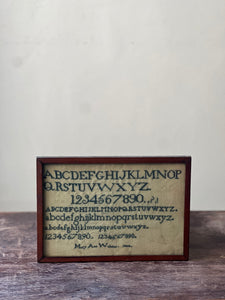 ABCDEFGHIJKLMNOP
QRSTUVWXYZ.
1234567890.
ABCDEFGHIJKLMNOPQRSTUVWXYZ.
abcdefghijklmnopqrstuvwxyz.
abcdefghijklmnopqrstuvwxyz.
1234567890. 1234567890.
Mary Ann